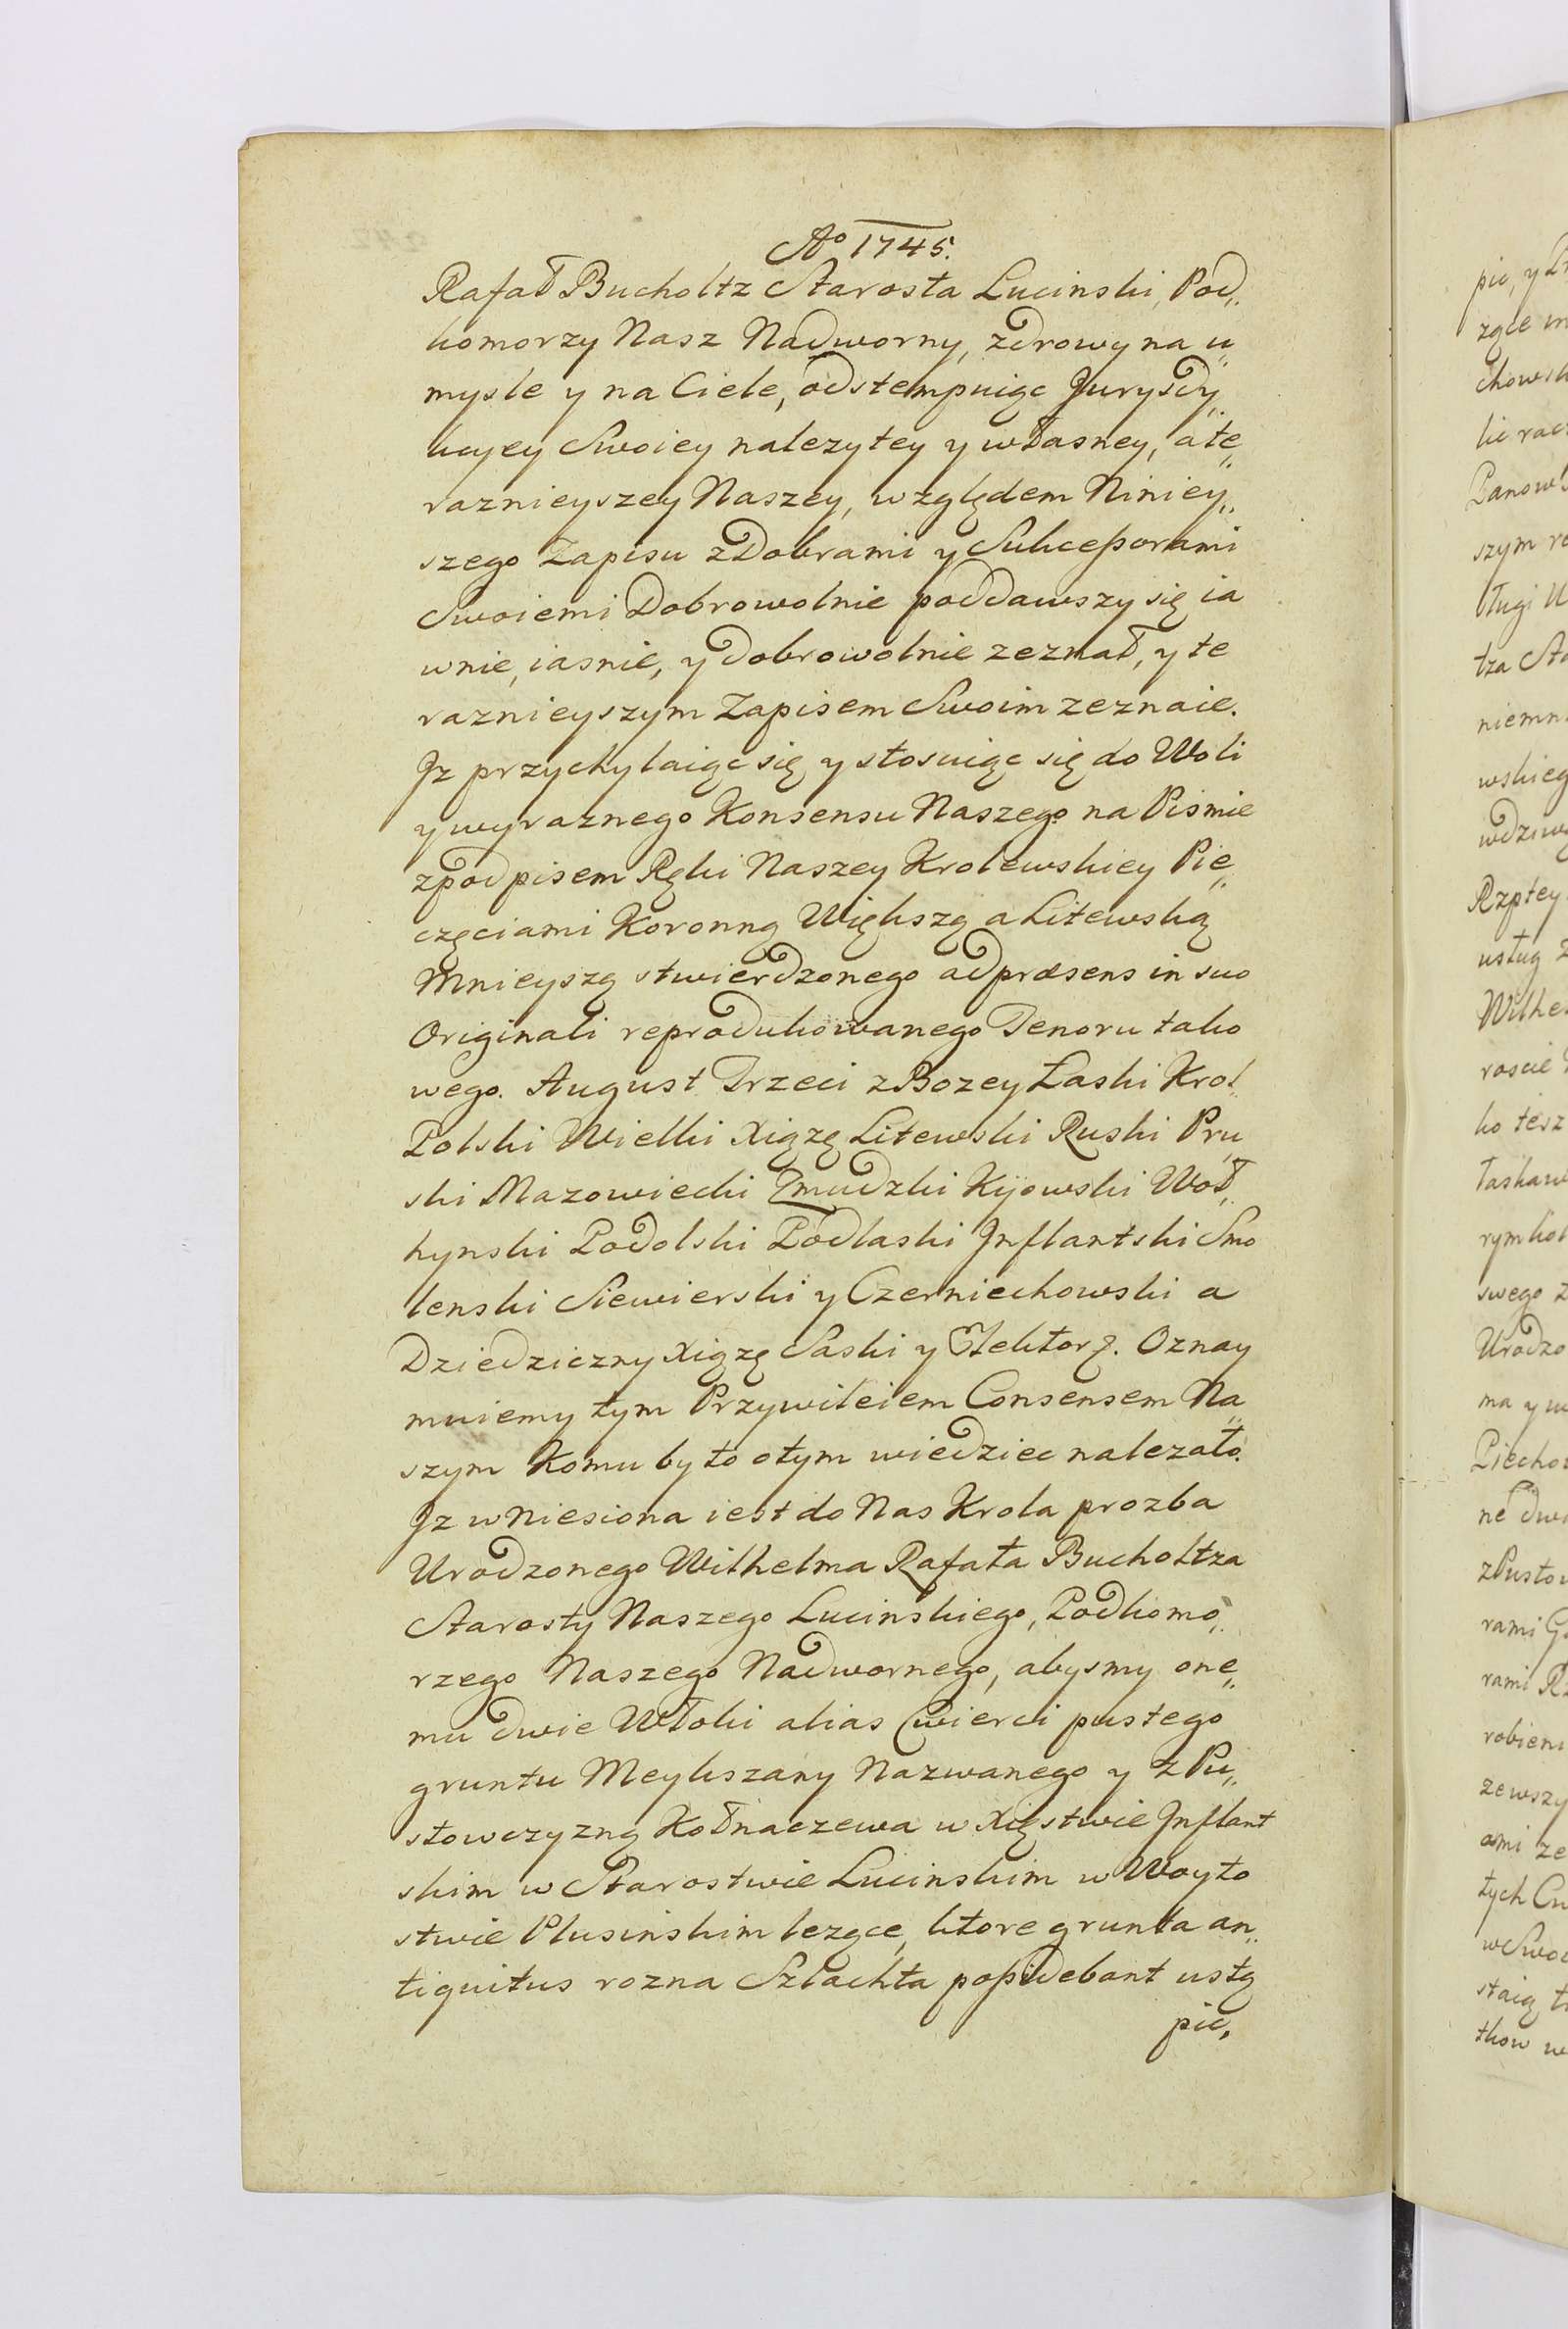 Aº 1745.
Rafał Bucholtz Starosta Lucinski, Pod„
komorzy Nasz Nadworny, zdrowy na u„
mysle y na Ciele, odstempuiąc Jurysdy„
kcyey Swoiey nalezytey y własney, a te„
raznieyszey Naszey, względem Niniey„
szego Zapisu z Dobrami y Sukceßorami
Swoiemi Dobrowolnie poddawszy się ia
wnie, iasnie, y dobrowolnie zeznał, y te
raznieyszym Zapisem Swoim zeznaie.
Jz przychylaiąc się y stosuiąc się do Woli
y wyraznego Konsensu Naszego na Pismie
z podpisem Ręki Naszey Krolewskiey Pie„
częciami Koronną Większą a Litewską
Mnieyszą stwierdzonego ad præsens in suo
Originali reprodukowanego Tenoru tako
wego. August Trzeci z Bozey Łaski Krol„
Polski Wielki Xiąże Litewski Ruski Pru„
ski Mazowiecki Zmudzki Kijowski Woł„
hynski Podolski Podlaski Jnflantski Smo
lenski Siewierski y Czerniechowski a
Dziedziczny Xiążę Saski y Elektorz. Oznay
muiemy tym Przywileiem Consensem Na„
szym Komu by to o tym wiedziec nalezało.
Jz wniesiona iest do Nas Krola prozba
Urodzonego Wilhelma Rafała Bucholtza
Starosty Naszego Lucinskiego, Podkomo„
rzego Naszego Nadwornego, abysmy one„
mu dwie Włoki alias Cwierci pustego
gruntu Meykszany Nazwanego y z Pu„
stowczyzną Kołnaczewa w Xięstwie Jnflant
skim w Starostwie Lucinskim w Woyto
stwie Plusinskim lezące, ktore grunta an„
tiquitus rozna Szlachta poßidebant ustą
pic,